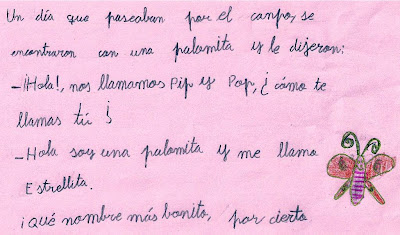 Un día que paseaban por el campo, se
encontraron con una palomita y le dijeron:
-¡Hola!, nos llamamos Pip y Pop, ¿cómo te
llamas tú?
-Hola soy una palomita y me llamo
Estrellita.
¡Qué nombre más bonito, por cierto